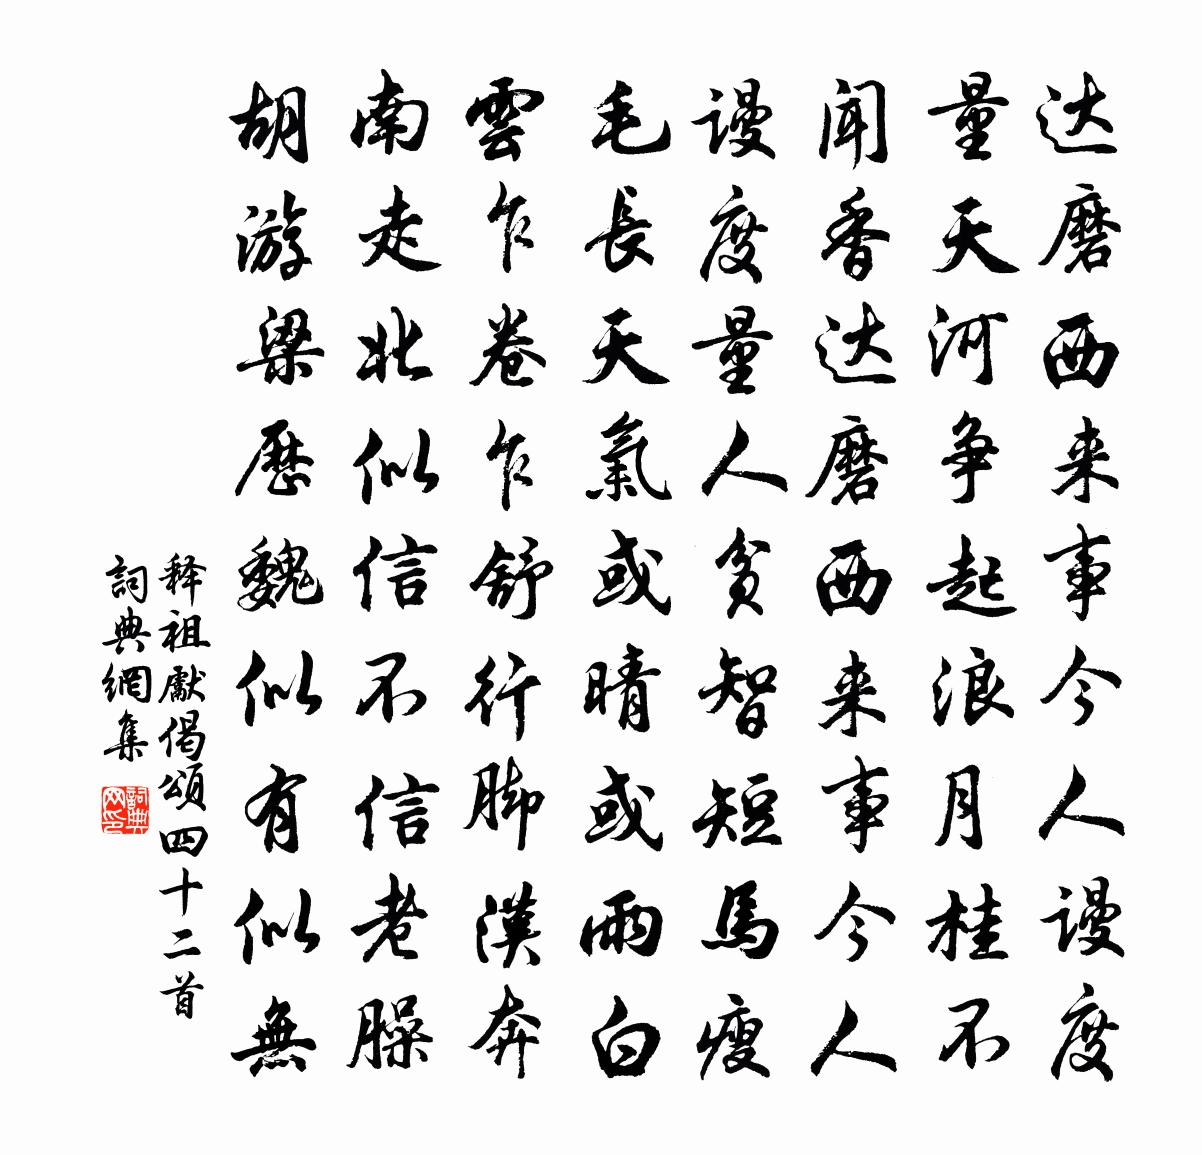 达磨西来事今人谩度
量天河争起浪月桂不
闻香达磨西来事今人
谩度量人贫智短馬瘦
毛長天氣或晴或雨白
雲乍卷乍舒行脚漢奔
南走北似信不信老臊
胡游梁歷魏似有似無
释祖獻偈頌四十二首
詞典網集
詞典网印